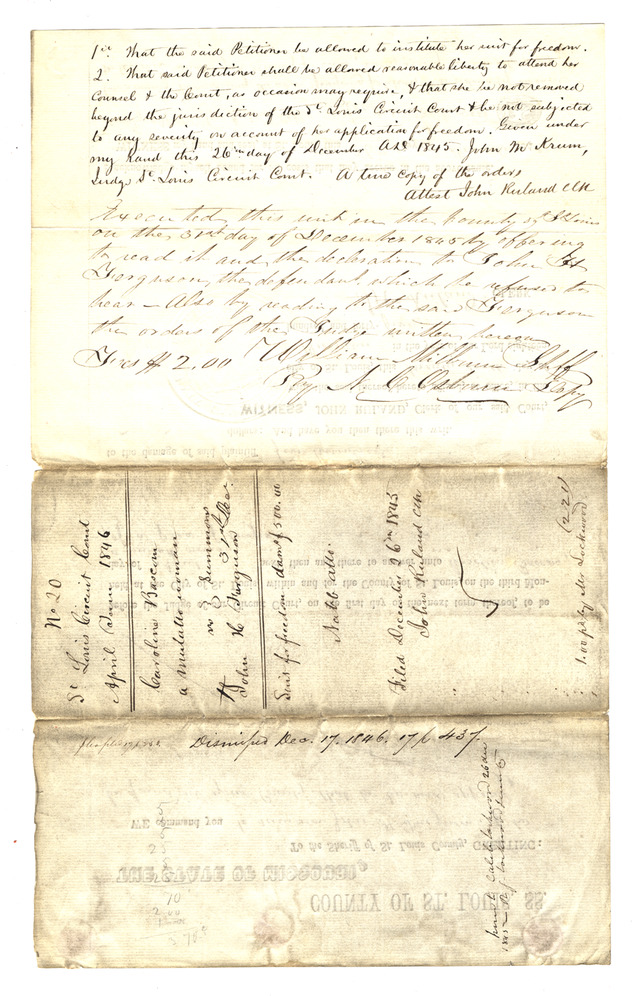 1st That the said Petitioner be allowed to institute her suit for freedom.
2. That said Petitioner shall be allowed reasonable liberty to attend her
Counsel & the Court, as occasion may require, & that she be not removed
beyond the jurisdiction of the St Louis Circuit Court & be not subjected
to any severity on account of her application for freedom. Given under
my hand this 26th day of December A.D. 1845. John M Krum,
Judge St Louis Circuit Court. A true copy of the orders
Attest John Ruland Clk
Executed this writ in the County of St Louis
on the 31st day of December 1845 by offering
to read it and the declaration to John H
Ferguson the defendant, which he refused to
hear — Also by reading to the said Ferguson
the orders of the Judge written hereon
Fees $2.00 William Milburn Shff
By Depy
WITNESS, JOHN RULAND, Clerk of our said Court,
dollars: And have you then there this writ.
to the damage of said plaintiff
No 20
St Louis Circuit Court
April Term 1846
Caroline
a mulatto woman
vs Summons
John H Ferguson 31st Dec.
Suit for freedom dam $500.00
Filed December 26th 1845
John Ruland Clk
1.00 pd by Mr Lockwood
Dismissed Dec. 17. 1846. 17 p 437
WE command you
To the Sheriff of St. Louis County, GREETING:
THE STATE OF MISSOURI,
COUNTY OF ST. LOUIS SS.
10